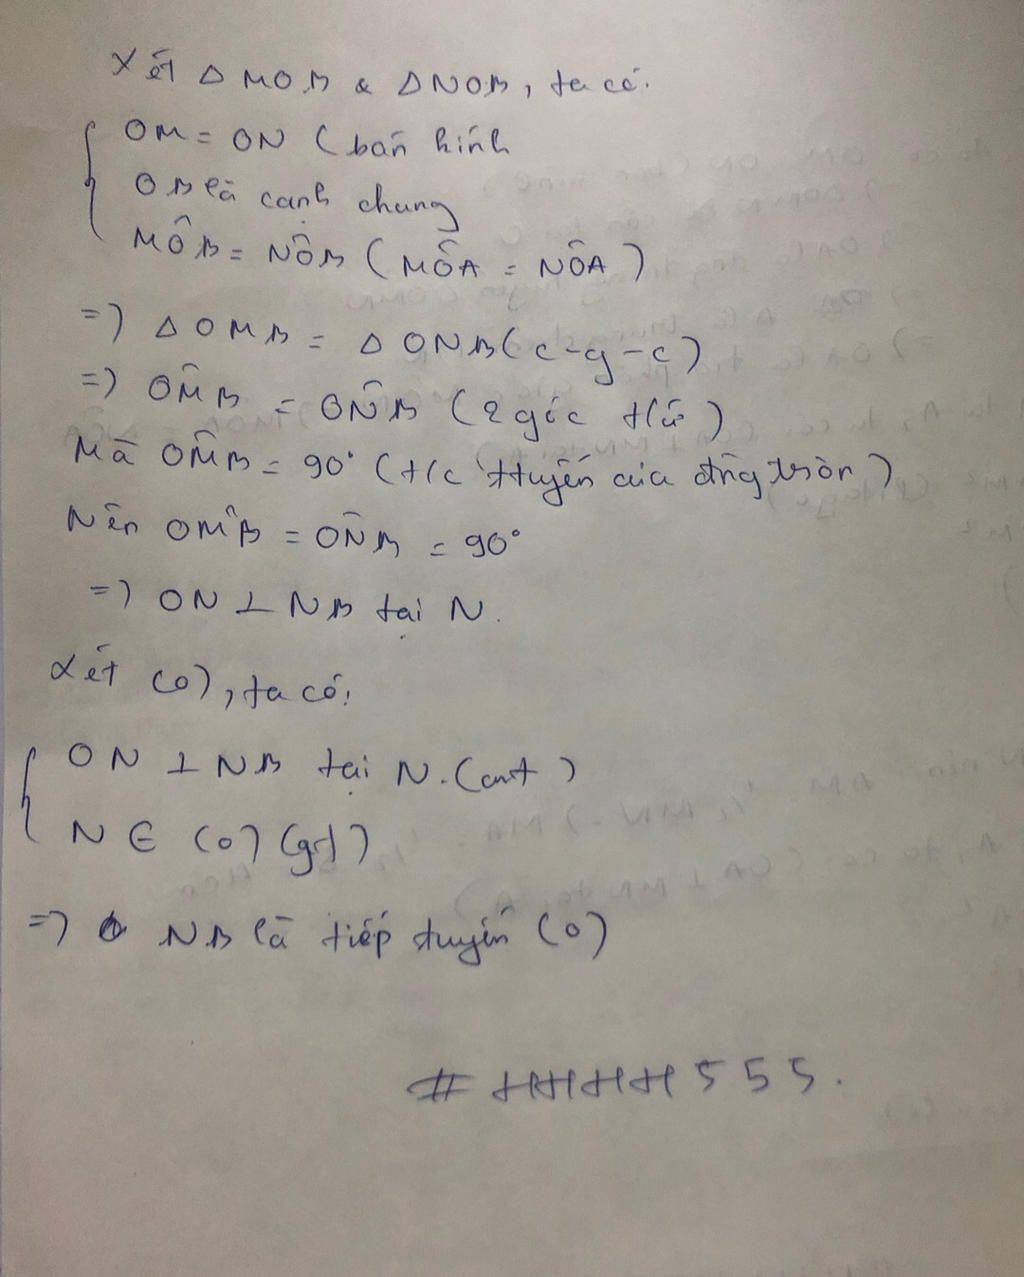 Xét Δ MOB & ΔNOB, ta có.
OM = ON (bán kính
OB là cạnh chung
MÔB = NÔB (MÔA = NÔA)
=) Δ OMB = Δ ONB (c-g-c)
=) OM̂B = ON̂B (2 góc t/ứ)
Mà OM̂B = 90° (t/c ttuyến của đtròn)
Nên OM̂B = ON̂B = 90°
=) ON ⊥ NB tại N.
Xét (O), ta có:
ON ⊥ NB tại N. (cmt)
N ∈ (O) (gt)
=) NB là tiếp tuyến (O)
# HHHH 555.